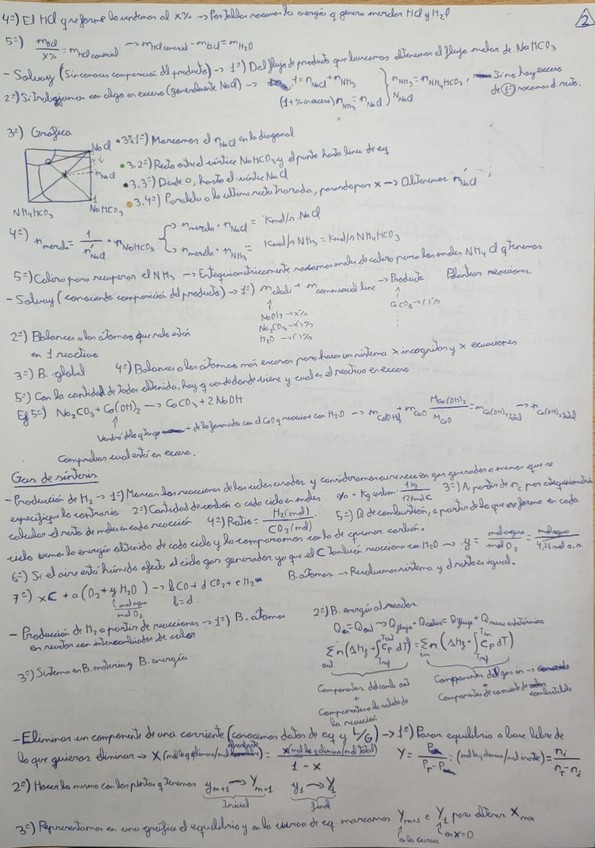 4º) El HCl q se forme lo vendemos al x% → Por tablas sacamos la energía q genera mezclar HCl y H₂O
2
5º) mHCl / x% = mHCl comercial → mHCl comercial - mHCl = mH₂O
- Solvay (Sin conocer composición del producto) → 1º) Del flujo de producto que buscamos obtenemos el flujo molar de NaHCO₃
2º) Si trabajamos con algo en exceso (generalmente NaCl) → 1 = nNaCl + nNH₃
(1 + % en exceso) nNH₃ = nNaCl } nNH₃ = nNH₄HCO₃, nNaCl Si no hay exceso de 1º) sacamos el resto.
3º) Gráfica
NaCl
nNaCl
NH₄HCO₃
NaHCO₃
3.1º) Marcamos el nNaCl en la diagonal
3.2º) Recta entre el vértice NaHCO₃ y el punto hasta línea de eq
3.3º) Desde O, hasta el vértice NaCl
3.4º) Paralela a la última recta trazada, pasando por x → Obtenemos n'NaCl
4º) nmezcla = 1 / n'NaCl · nNaHCO₃
→ nmezcla · nNaCl = Kmol/h NaCl
→ nmezcla · nNH₃ = Kmol/h NH₃ = Kmol/h NH₄HCO₃
5º) Caliza para recuperar el NH₃ → Estequiométricamente sacamos moles de caliza para los moles NH₄Cl q tenemos
- Solvay (conociendo composición del producto) → 1º) → Producto Plantear reacciones
NaOH → x%
Na₂CO₃ → ( )%
H₂O → ( )%
CaCO₃ → ( )%
2º) Balances a los átomos que solo estén
en 1 reactivo
3º) B. global 4º) Balances a los átomos más escasos para hacer un sistema x incógnitas y x ecuaciones
5º) Con la cantidad de todos obtenida, hay q ver de donde viene y cual es el reactivo en exceso
Ej 5º) Na₂CO₃ + Ca(OH)₂ → CaCO₃ + 2NaOH
Vendrá del q tengo + de lo formado con el CaO q reacciona con H₂O → mCa(OH)₂ + mCaO · MCa(OH)₂ / MCaO = mCa(OH)₂ total → nCa(OH)₂ total
Comprobar cual está en exceso.
Gas de síntesis
- Producción de H₂ → 1º) Marcar las reacciones de los ciclos usados y consideramos ausencia en gas generado a menos que se
especifique lo contrario 2º) Cantidad de carbón a cada ciclo en moles % · Kg carbón · 1 Kg / 12 Kmol C 3º) A partir de nC por estequiometría
calcular el resto de moles en cada reacción 4º) Ratio = H₂(mol) / CO₂(mol) 5º) Q de combustión, a partir de lo que se forme en cada
ciclo vemos la energía obtenida de cada ciclo y la comparamos con la de quemar carbón.
6º) Si el aire está húmedo afecta al ciclo gas generador ya que el C también reacciona con H₂O → y = mol agua / mol O₂ = mol agua
7º) xC + a(O₂ + yH₂O) → bCO + dCO₂ + eH₂ B. átomos → Resolvemos sistema y el resto es igual.
mol agua / mol O₂
b = d
- Producción de H₂ a partir de reacciones → 1º) B. átomos
en reactor con intercambiador de calor
2º) B. energía al reactor
3º) Sistema con B. materia y B. energía
Componentes del caudal out
+
Componentes a la salida de
la reacción
Componentes del gas in
+
Componentes de corriente de combustible
- Eliminar un componente de una corriente (conocemos datos de eq y L/G) → 1º) Pasar equilibrio a base libre de
lo que quieras eliminar → = x (mol lo q elimina/mol total) / 1 - x Y = (mol lo q elimina/mol inerte) = ni / nT - ni
2º) Hacer lo mismo con los puntos q tenemos ym+1 → Ym+1 y1 → Y1
Inicial Final
3º) Representamos en una gráfica el equilibrio y en la curva de eq. marcamos Ym+1 e Y1 para obtener Xmax
a la curva en x=0